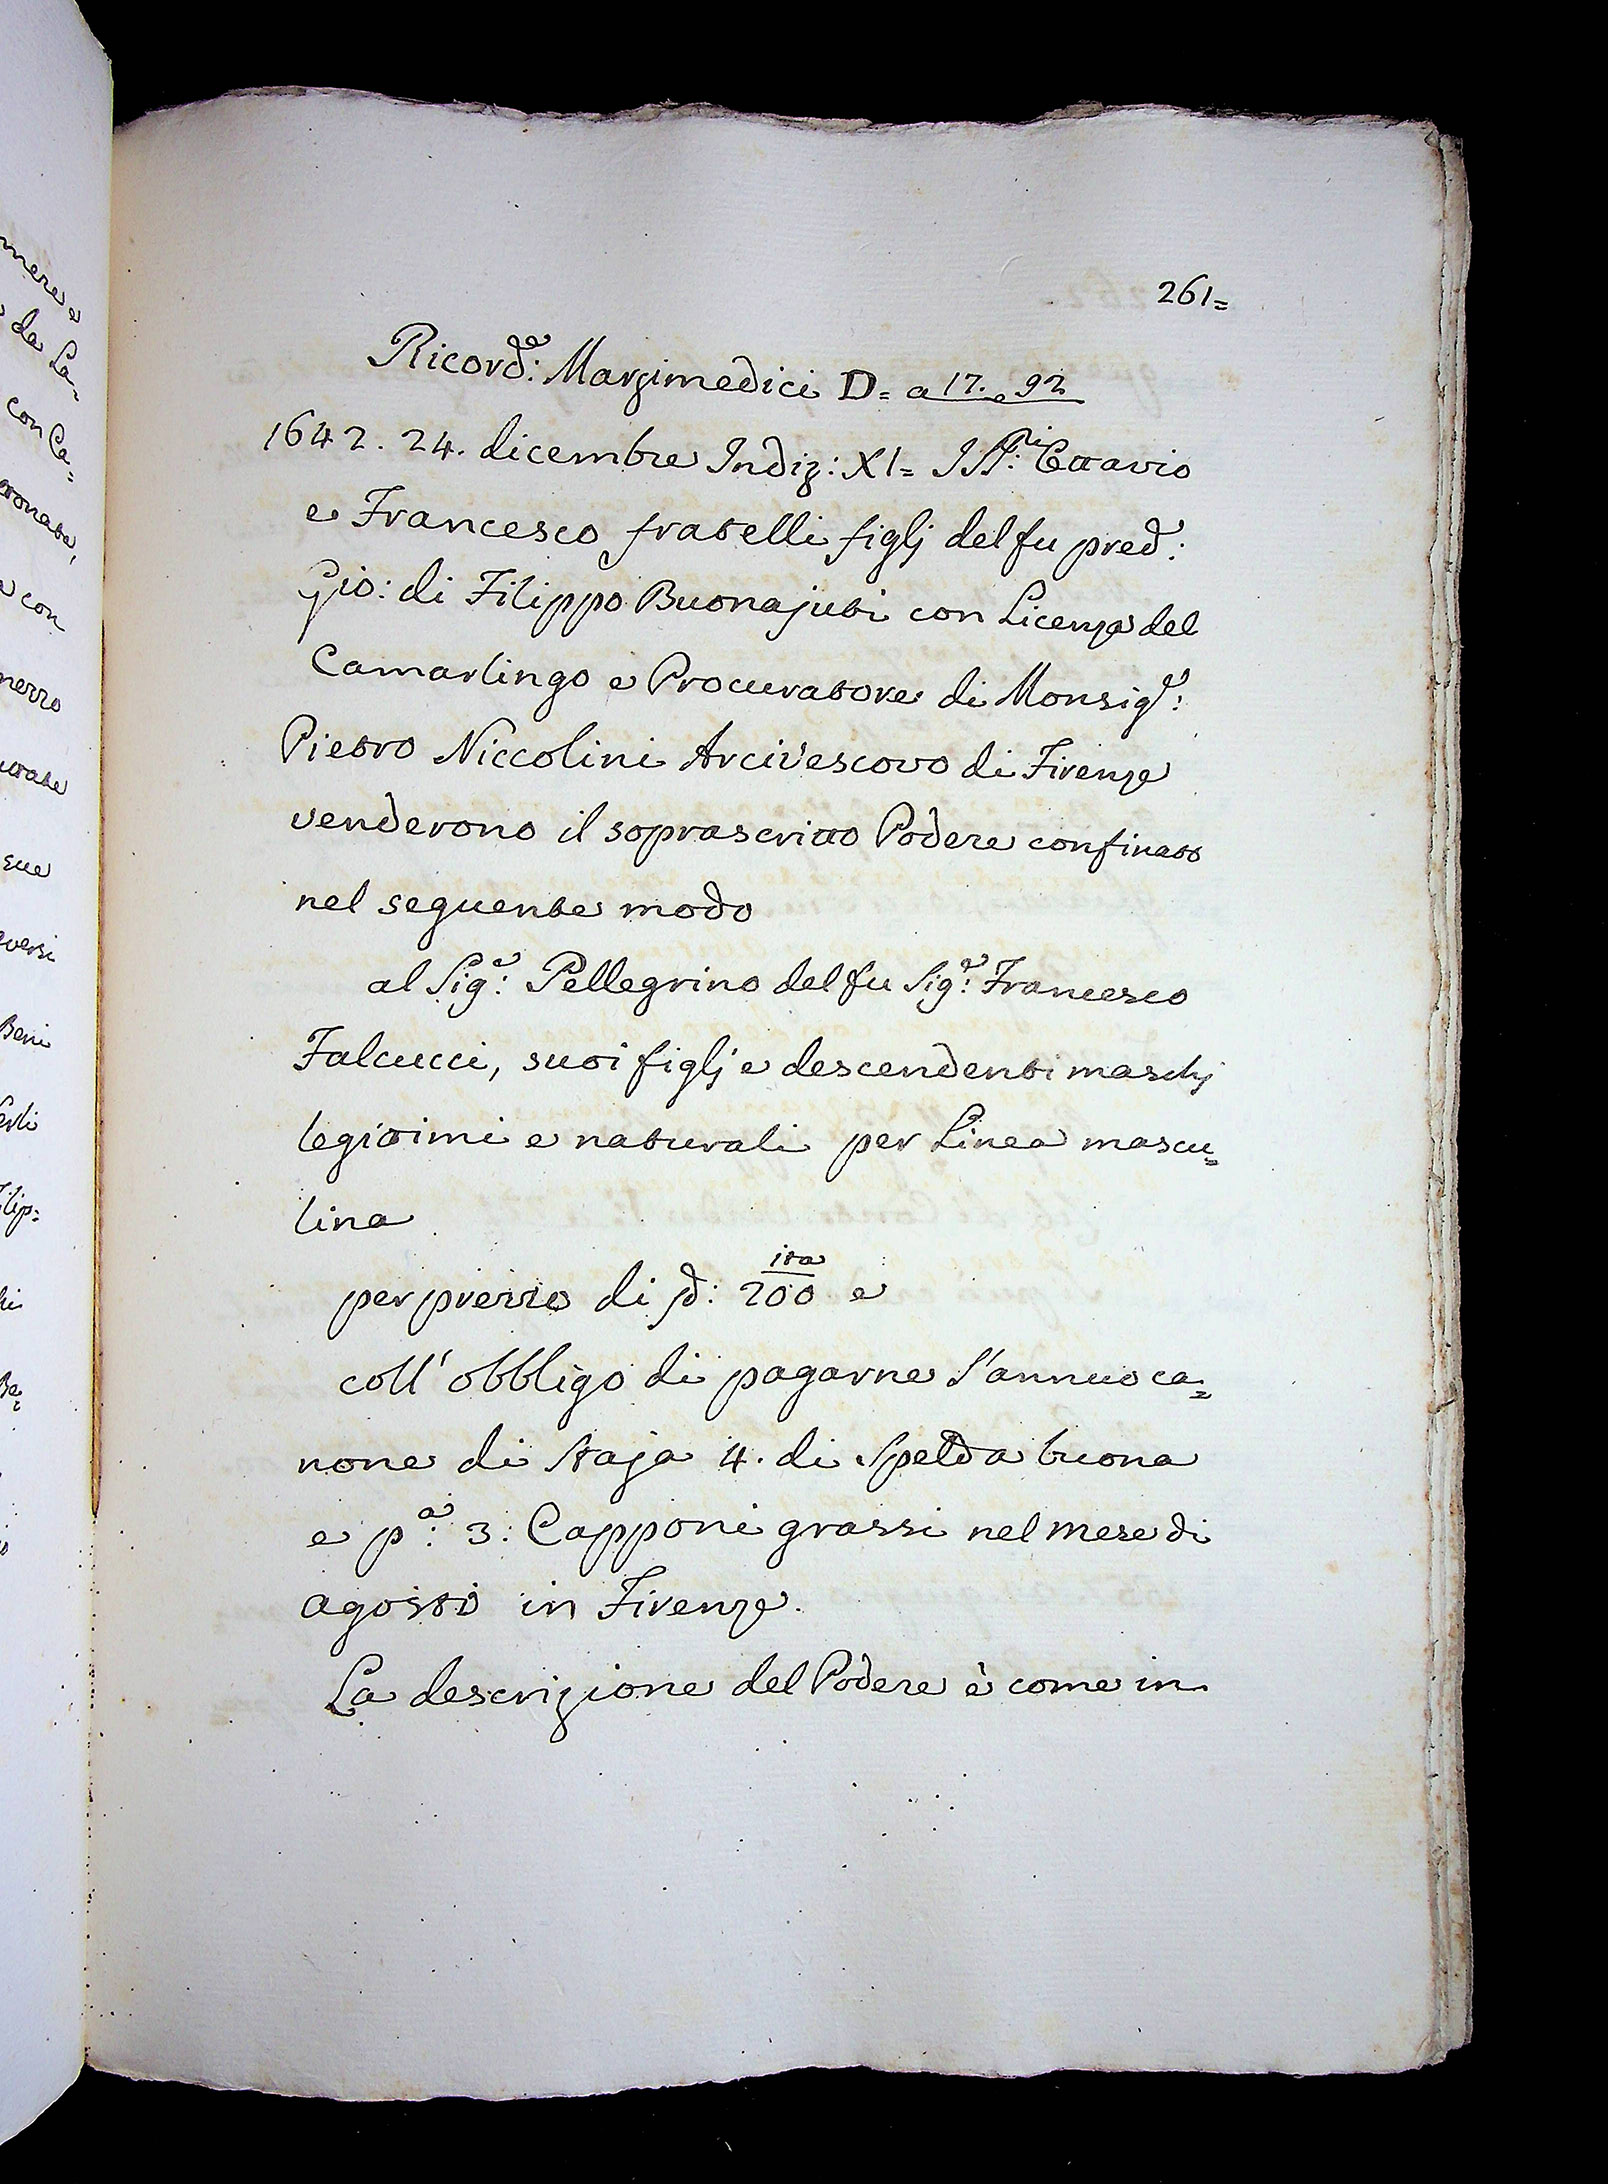 261=
Ricord.e: Marzimedici D= a 17. e 92
1642. 24. dicembre Indiz: XI= I SS.ri: Ottavio
e Francesco fratelli figlj del fu pred.o:
Gio: di Filippo Buonajuti con Licenza del
Camarlingo e Procuratore di Monsig.e:
Pietro Niccolini Arcivescovo di Firenze
venderono il soprascritto Podere confinato
nel seguente modo
al Sig.e: Pellegrino del fu Sig.e: Francesco
Falcucci, suoi figlj e descendenti maschj
legittimi e naturali per Linea mascu=
lina
per prezzo di ∇: 200 ita e
coll' obbligo di pagarne l'annuo ca=
none di Staja 4. di Spelda buona
e p.a: 3: Capponi grassi nel mese di
agosto in Firenze.
La descrizione del Podere è come in
mere e
da La=
con Ca=
tonata,
con
nerro
trate
sue
versi
Beni
ilip=
Be=